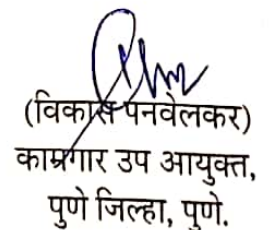 (विकास पनवेलकर)
कामगार उप आयुक्त,
पुणे जिल्हा, पुणे.